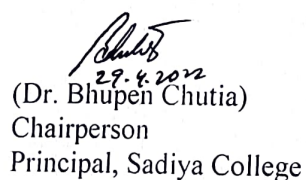 29.4.2022
(Dr. Bhupen Chutia)
Chairperson
Principal, Sadiya College